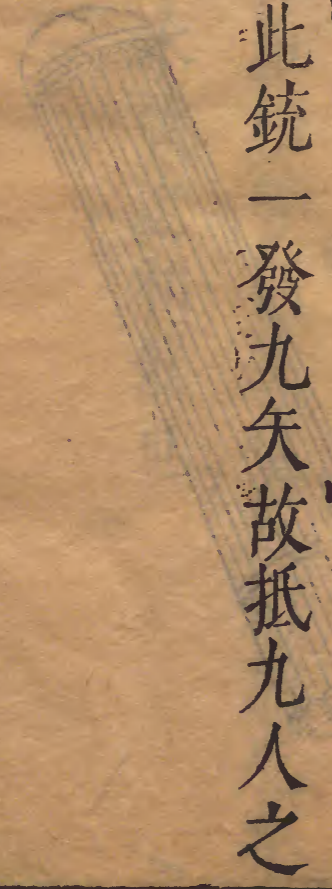 此銃一發九矢故抵九人之